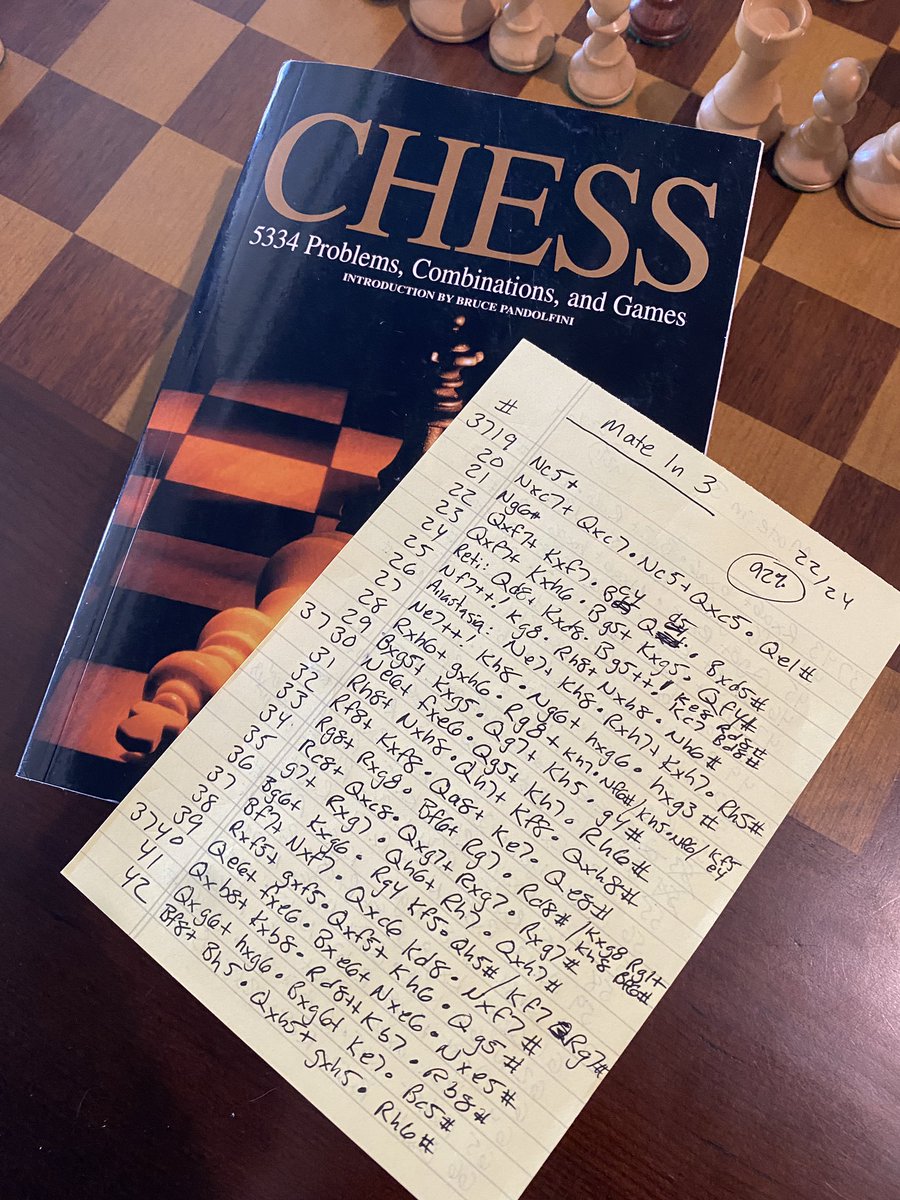 CHESS
5334 Problems, Combinations, and Games
INTRODUCTION BY BRUCE PANDOLFINI
# Mate In 3
22/24
92%
3719 Nc5+
20 Nxc7+ Qxc7. Nc5+ Qxc5. Qe1#
21 Ng6#
22 Qxf7+ Kxf7. Bc4 Qd5. Bxd5#
23 Qxf7+ Kxh6. Bg5+ Kxg5. Qf4#
24 Reti: Qd8+ Kxd8. Bg5++. Ke8 Rd8# / Kc7 Bd8#
25 Nf7++. Kg8. Rh8+ Nxh8. Nh6#
26 Anastasia: Ne7+ Kh8. Rxh7+ Kxh7. Rh5#
27 Ne7++! Kh8. Ng6+ hxg6. hxg3#
28 Rxh6+ gxh6. Rg8+ Kh7. Nf6# / Kh5. Nf6 / Kf5 e4
29 Bxg5+ Kxg5. Qg7+ Kh5. g4#
3730 Ne6+ fxe6. Qg5+ Kh7. Rh6#
31 Rh8+ Nxh8. Qh7+ Kf8. Qxh8#
32 Rf8+ Kxf8. Qa8+ Ke7. Qe8#
33 Rg8+ Rxg8. Bf6+ Rg7. Rd8# / Kxg8 Rg1+ Kh8 Bf6#
34 Rc8+ Qxc8. Qxg7+ Rxg7. Rxg7#
35 g7+ Rxg7. Qh6+ Rh7. Qxh7#
36 Bg6+ Kxg6. Rg4 Kf5. Qh5# / Kf7 Rg7#
37 Bf7+ Nxf7. Qxc6 Kd8. Nxf7#
38 Rxf5+ gxf5. Qxf5+ Kh6. Qg5#
39 Qe6+ fxe6. Bxe6+ Nxe6. Nxe5#
3740 Qxb8+ Kxb8. Rd8++ Kb7. Rb8#
41 Qxg6+ hxg6. Bxg6+ Ke7. Bc5#
42 Bf8+ Bh5. Qxh5+ gxh5. Rh6#